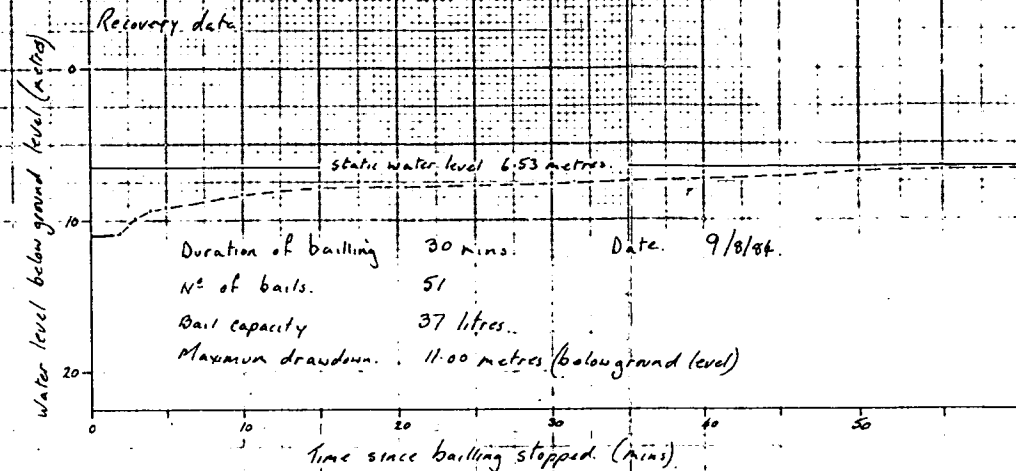 Recovery data
Water level below ground level (metres)
0
10
20
static water level 6.53 metres.
Duration of bailling 30 mins. Date. 9/8/84.
Nº of bails. 51
Bail capacity 37 litres.
Maximum drawdown. 11.00 metres (below ground level)
0 10 20 30 40 50
Time since bailling stopped. (mins)